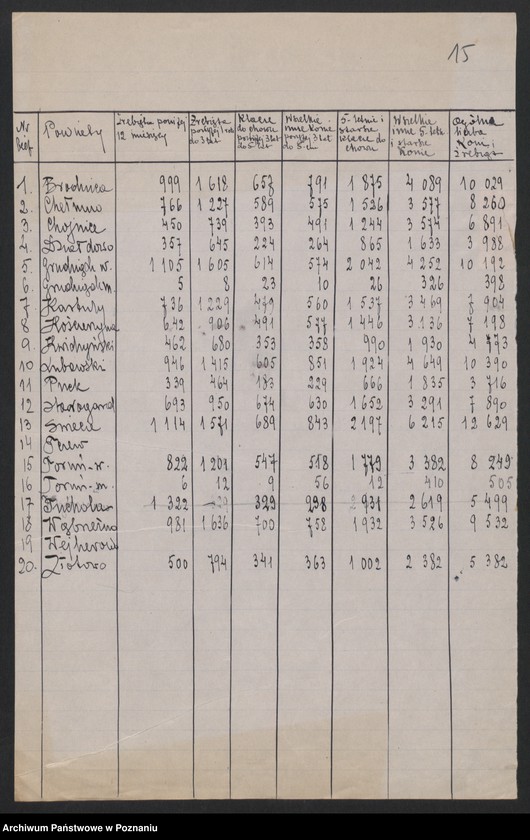 15
Nr bież. Powiaty Źrebięta poniżej 12 miesięcy Źrebięta powyżej 1 roku do 3 lat Klacze do chowu powyżej 3 lat do 5 lat Wszelkie inne konie powyżej 3 lat do 5 lat 5-letnie i starsze klacze do chowu Wszelkie inne 5-letn. i starsze konie Ogólna liczba koni i źrebiąt
1. Brodnica 999 1 618 657 791 1 875 4 089 10 029
2. Chełmno 766 1 227 589 575 1 526 3 577 8 260
3. Chojnice 450 739 393 491 1 244 3 574 6 891
4. Działdowo 357 645 224 264 865 1 633 3 988
5. Grudziądz w. 1 105 1 605 614 574 2 042 4 252 10 192
6. Grudziądz m. 5 8 23 10 26 326 398
7 Kartuzy 736 1 229 560 1 537 3 469 7 904
8 Kościerzyna 642 906 491 577 1 446 3 136 7 198
9. Kwidzyński 462 680 353 358 990 1 930 4 773
10 Lubawski 946 1 415 605 851 1 924 4 649 10 390
11 Puck 339 464 183 229 666 1 835 3 716
12 Starogard 693 950 674 630 1 652 3 291 7 890
13 Świecie 1 114 1 571 689 843 2 197 6 215 12 629
14 Tczew
15 Toruń-w. 822 1 201 547 518 1 779 3 382 8 249
16 Toruń-m. 6 12 9 56 12 410 505
17 Tuchola 1 322 329 298 931 2 619 5 499
18 Wąbrzeźno 981 1 636 700 758 1 932 3 526 9 532
19 Wejherowo
20. Złotowo 500 794 341 363 1 002 2 382 5 382
Archiwum Państwowe w Poznaniu